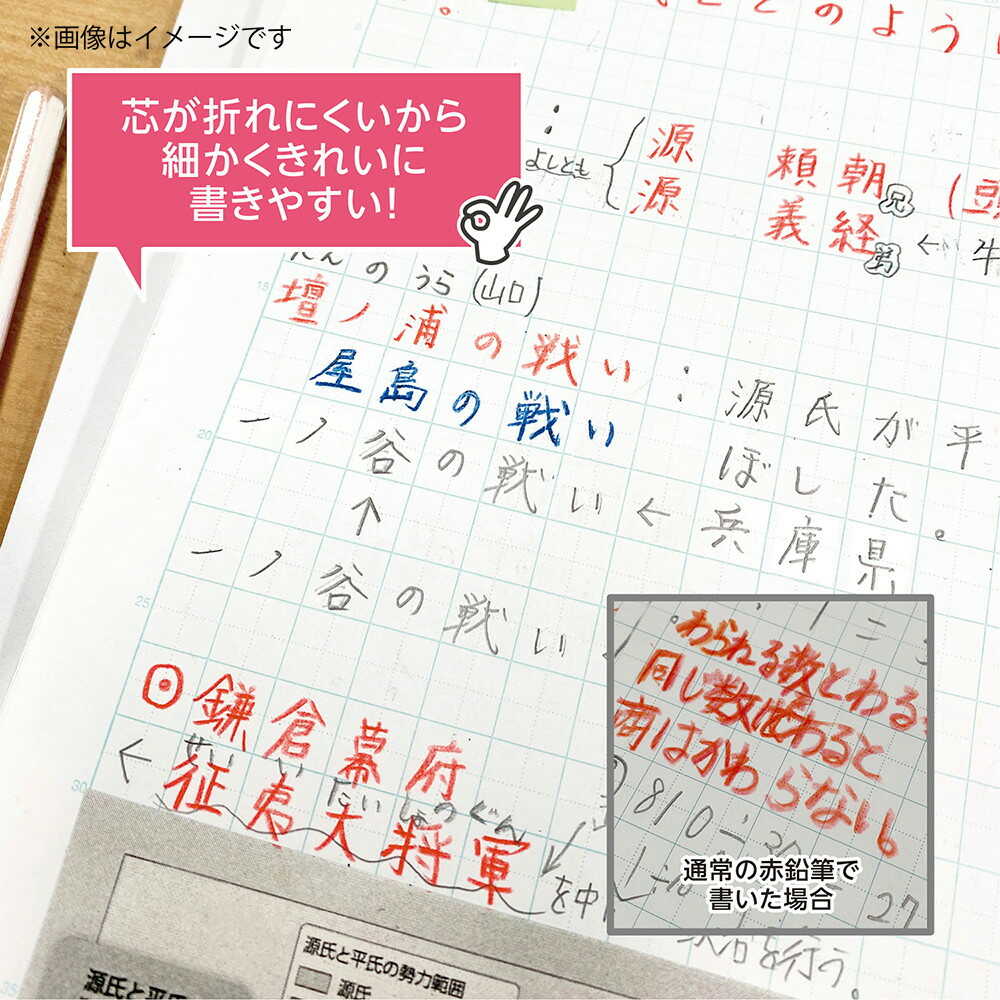 ※画像はイメージです
芯が折れにくいから
細かくきれいに
書きやすい!
のように
よしとも
源 頼朝 兄
源 義経 弟 ← 牛
だんのうら(山口)
18
壇ノ浦の戦い:源氏が平
屋島の戦い ぼした。
20
一ノ谷の戦い←兵庫県
↑
一ノ谷の戦い
25
鎌倉幕府
せいいたいしょうぐん
←征夷大将軍
30
を中
を行う。
わられる数とわる
同じ数でわると
商はかわらない。
810÷30
27
通常の赤鉛筆で
書いた場合
源氏と平氏の勢力範囲
源氏
源氏と平氏